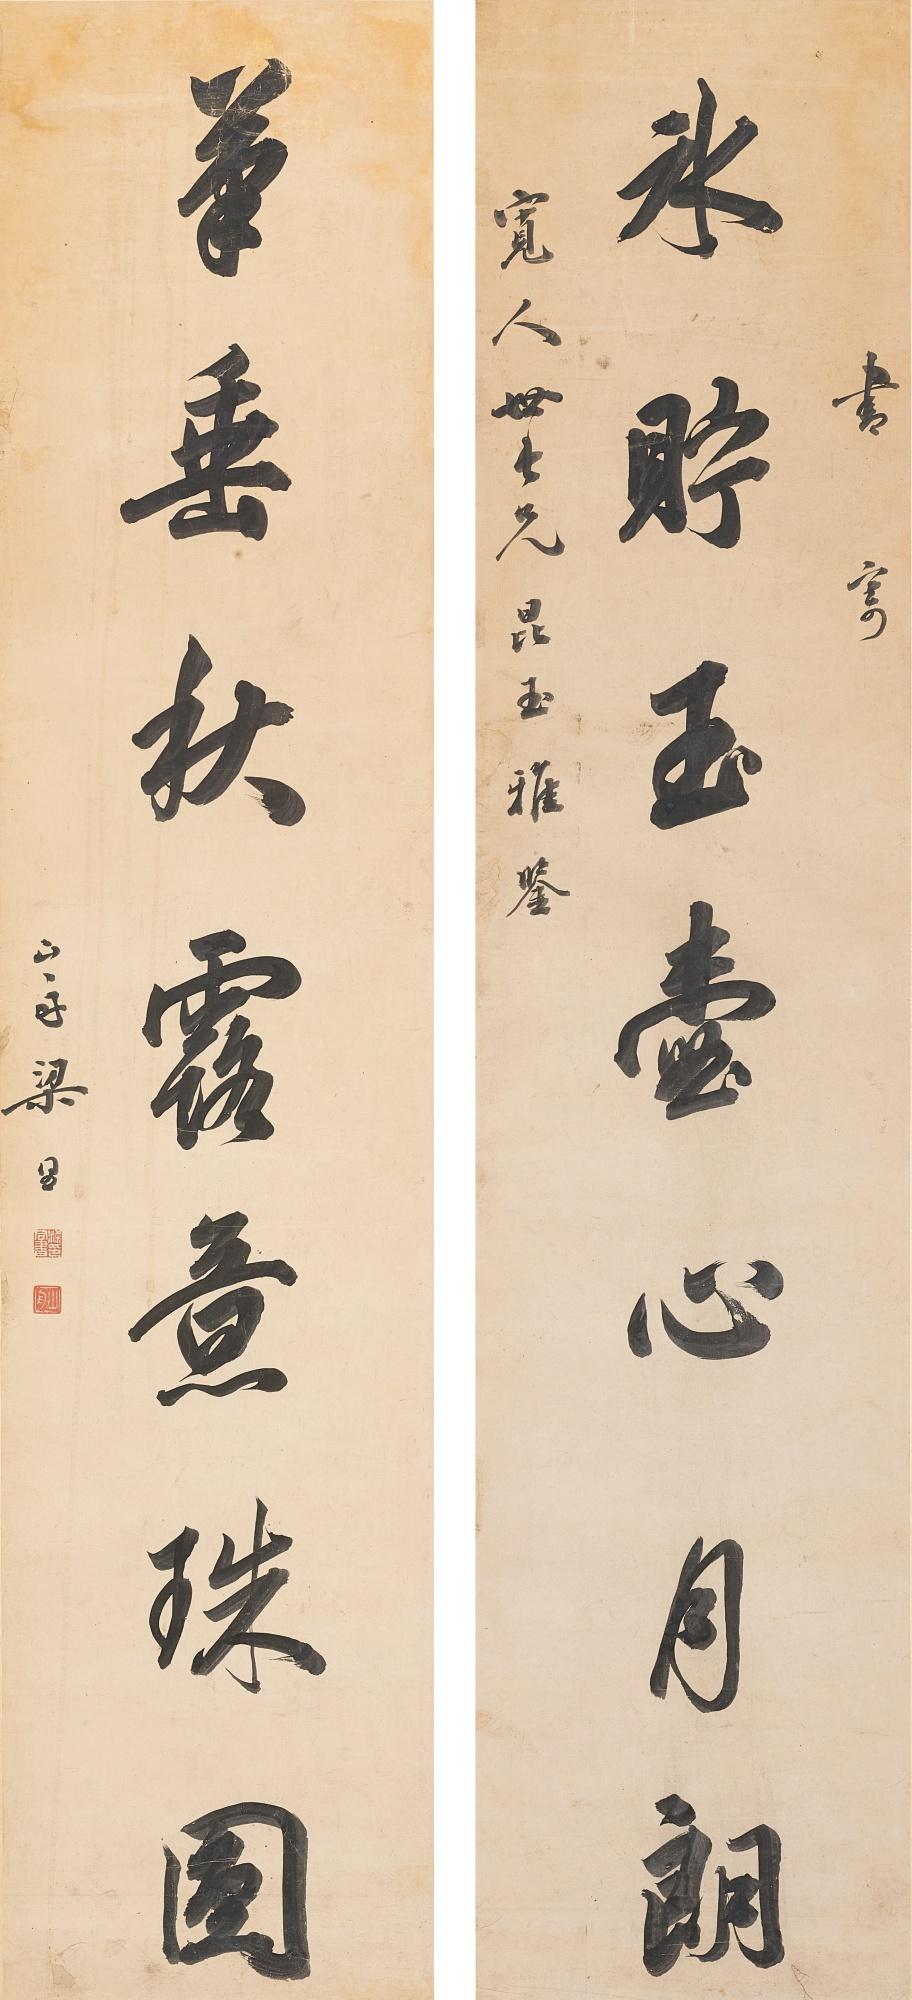 書寄
氷貯玉壺心月朗
寬人世大兄昆玉雅鑒
筆垂秋露意珠圓
山舟梁同書